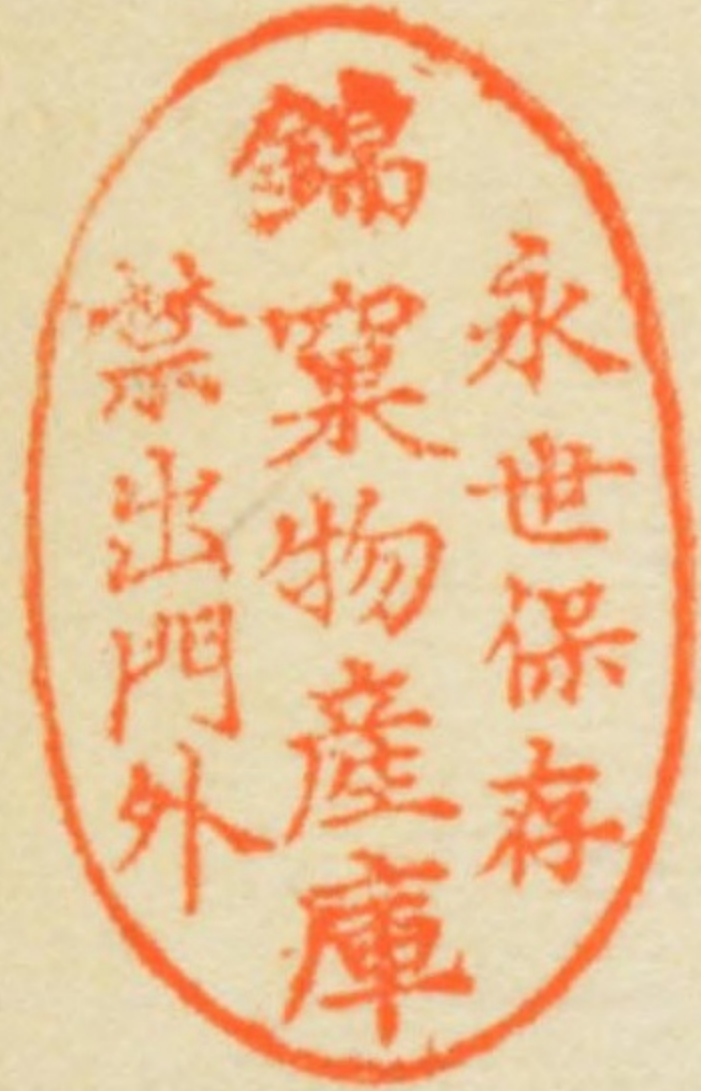 永世保存
錦窠物産庫
禁出門外